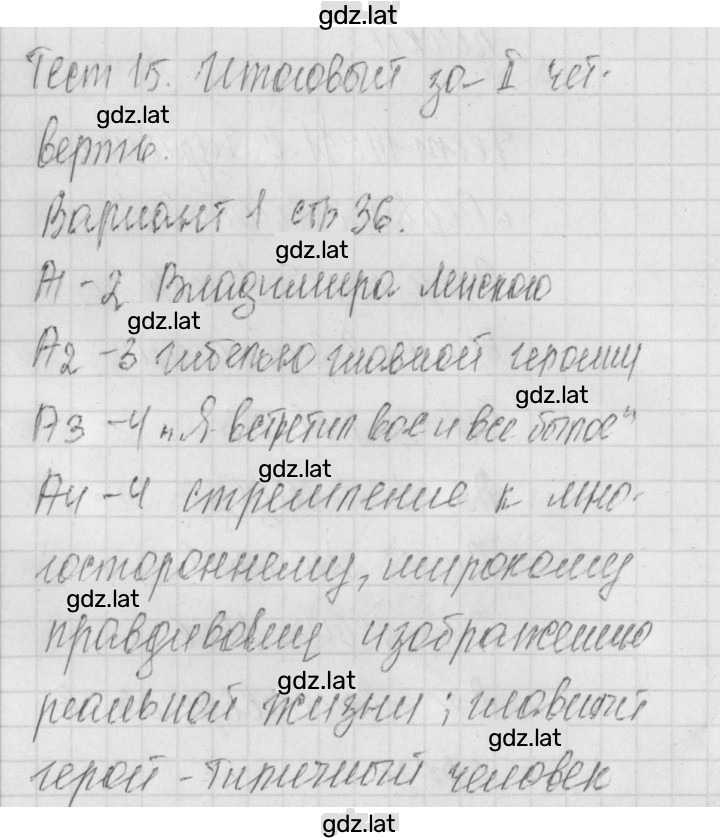 gdz.lat
Тест 15. Итоговый за II чет-
gdz.lat
верть.
Вариант 1 стр 36.
gdz.lat
А1 - 2 Владимира Ленского
gdz.lat
А2 - 3 гибелью главной героини
gdz.lat
А3 - 4 „Я встретил вас и все былое"
gdz.lat
А4 - 4 стремление к мно-
гостороннему, широкому
gdz.lat
правдивому изображению
gdz.lat
реальной жизни; главный
gdz.lat
герой - типичный человек
gdz.lat